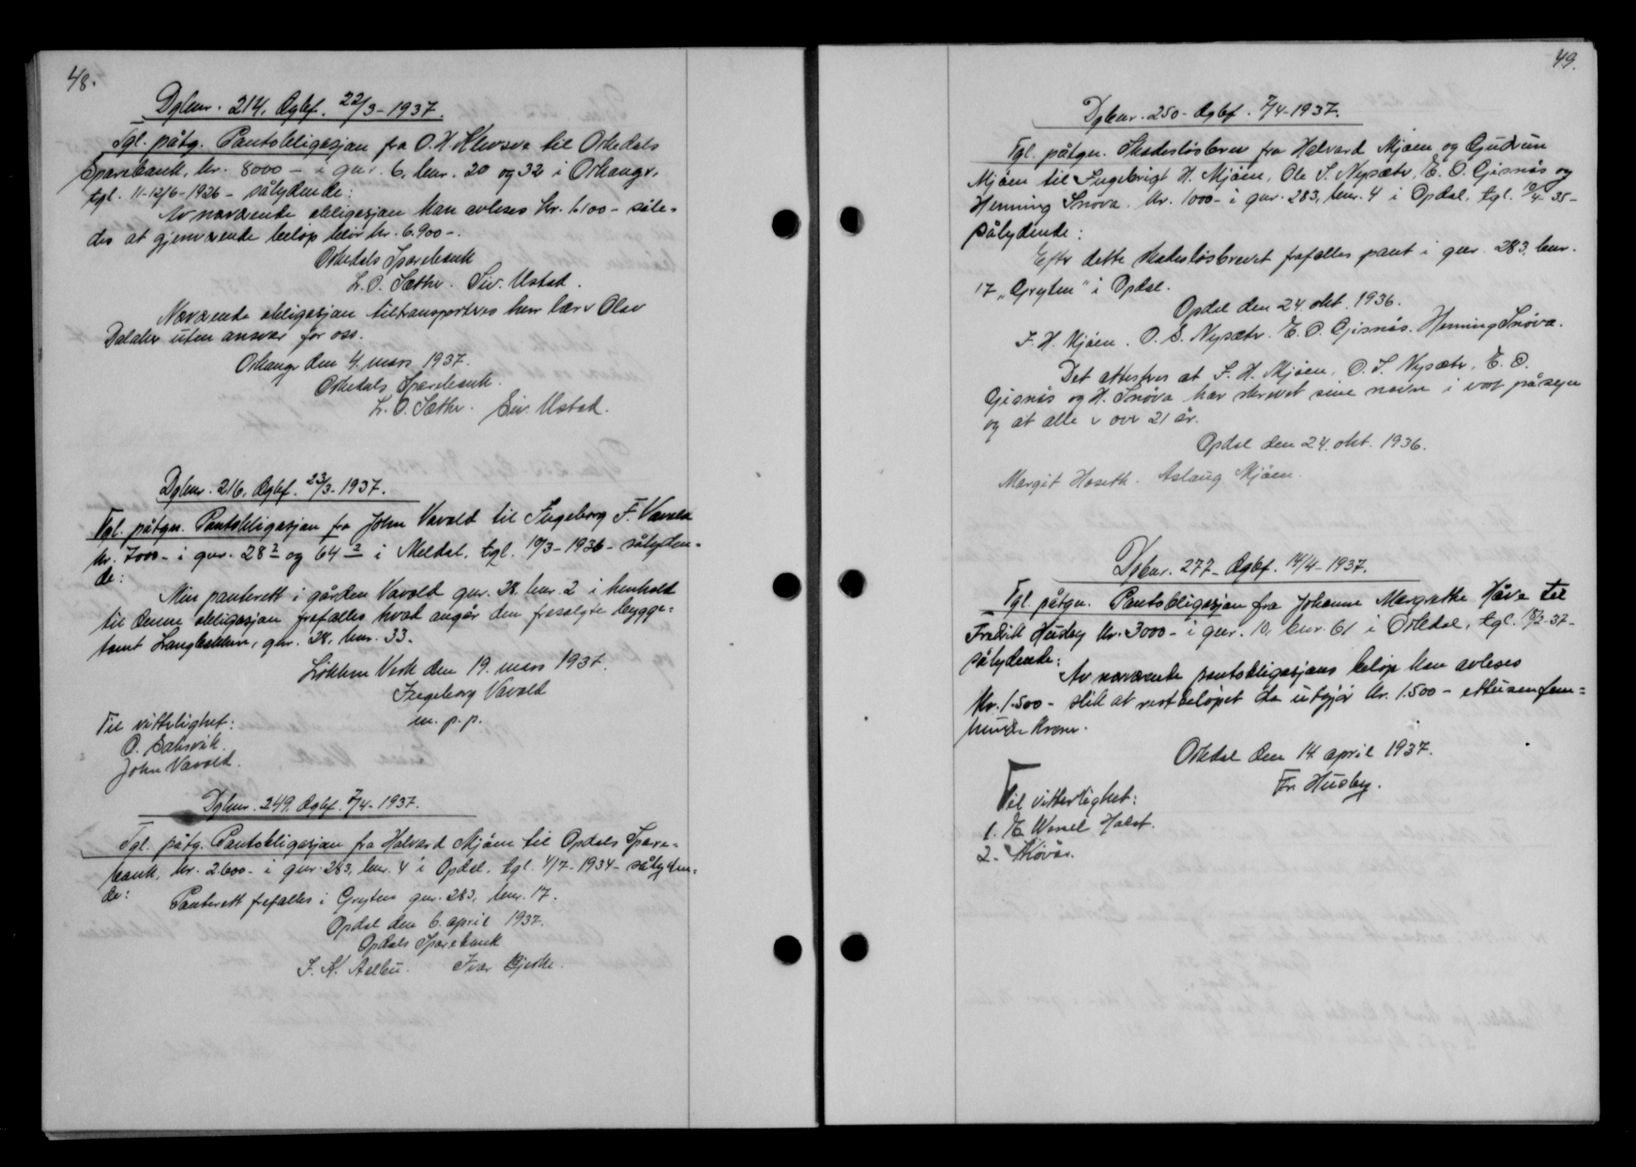 48.
Dgbnr. 214. Dgbf. 22/3-1937.
Tgl. påtg. Pantobligasjon fra O. H. til Orkedals
Sparebank, kr. 8000 - i gnr. 6, bnr. 20 og 32 i Orkanger,
tgl. 11-12/6-1926 - sålydende:
Av nærværende obligasjon kan avleses kr. 1.100 - såle-
des at gjenværende beløp blir kr. 6.900-.
Orkedals Sparebank
L. O. Sæther. Siv. Ustad.
Nærværende obligasjon tiltransporteres herr Olav
uten ansvar for oss.
Orkanger den 4. mars 1937.
Orkedals Sparebank.
L. O. Sæther. Siv. Ustad.
Dgbnr. 216. Dgbf. 23/3-1937.
Tgl. påtgn. Pantobligasjon fra John Vavold til Ingeborg F. Vavold
kr. 7000- i gnr. 28 2 og 64 3 i Meldal, tgl. 10/3-1936- sålyden-
de:
Min panterett i gården Vavold gnr. 28. bnr. 2 i henhold
til denne obligasjon frafalles hvad angår den frasolgte bygge-
tomt gnr. 28, bnr. 33.
Løkken Verk den 19. mars 1937.
Ingeborg Vavold
m. p. p.
Til vitterlighet:
O.
John Vavold.
Dgbnr. 249. Dgbf. 7/4-1937.
Tgl. påtg. Pantobligasjon fra Halvard Mjøen til Opdals Spare-
bank, kr. 2600- i gnr. 283, bnr. 4 i Opdal. tgl. 4/7-1934- sålyden-
de:
Panterett frafalles i Gryten gnr. 283, bnr. 17.
Opdal den 6. april 1937.
Opdals Sparebank
J. K. Aalbu. Ivar Gjerde.
49.
Dgbnr. 250- Dgbf. 7/4-1937.
Tgl. påtgn. Skadesløsbrev fra Halvard Mjøen og Gudrun
Mjøen til Ingebrigt H. Mjøen, Ole S. Nysæter, E. O. Gisnås og
Henning Snøva. kr. 1000- i gnr. 283, bnr. 4 i Opdal, tgl. 10/4-35-
Sålydende:
Efter dette skadesløsbrevet frafalles pant i gnr. 283. bnr.
17 "Gryten" i Opdal.
Opdal den 24. okt. 1936.
I. H. Mjøen. O. S. Nysæter. E. O. Gisnås. Henning Snøva.
Det attesteres at I. H. Mjøen, O. S. Nysæter, E. O.
Gisnås og H. Snøva har skrevet sine navne i vort påsyn
og at alle er over 21 år.
Opdal den 24. okt. 1936.
Margit Hoseth. Aslaug Mjøen.
Dgbnr. 277- Dgbf. 14/4-1937.
Tgl. påtgn. Pantobligasjon fra Johanne Margrethe Håve til
Fredrik Husby kr. 3000- i gnr. 10, bnr. 61 i Orkdal, tgl. 15/2-37-
sålydende:
Av nærværende pantobligasjons beløp kan avleses
kr. 1.500- slik at restbeløpet da utgjør kr. 1.500 - ettusenfem-
hundre kroner.
Orkdal den 14. april 1937.
Fr. Husby.
Til vitterlighet:
1. E. Wessel Holst.
2.